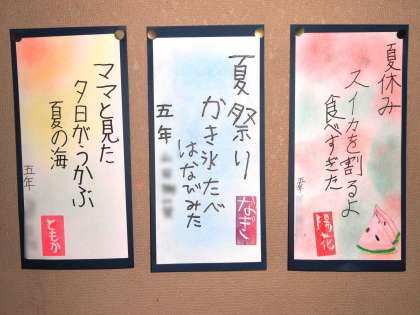 夏休み
スイカを割るよ
食べすぎた
五年
陽花
夏祭り
かき氷たべ
はなびみた
五年
なぎ
ママと見た
夕日がうかぶ
夏の海
五年
ともか